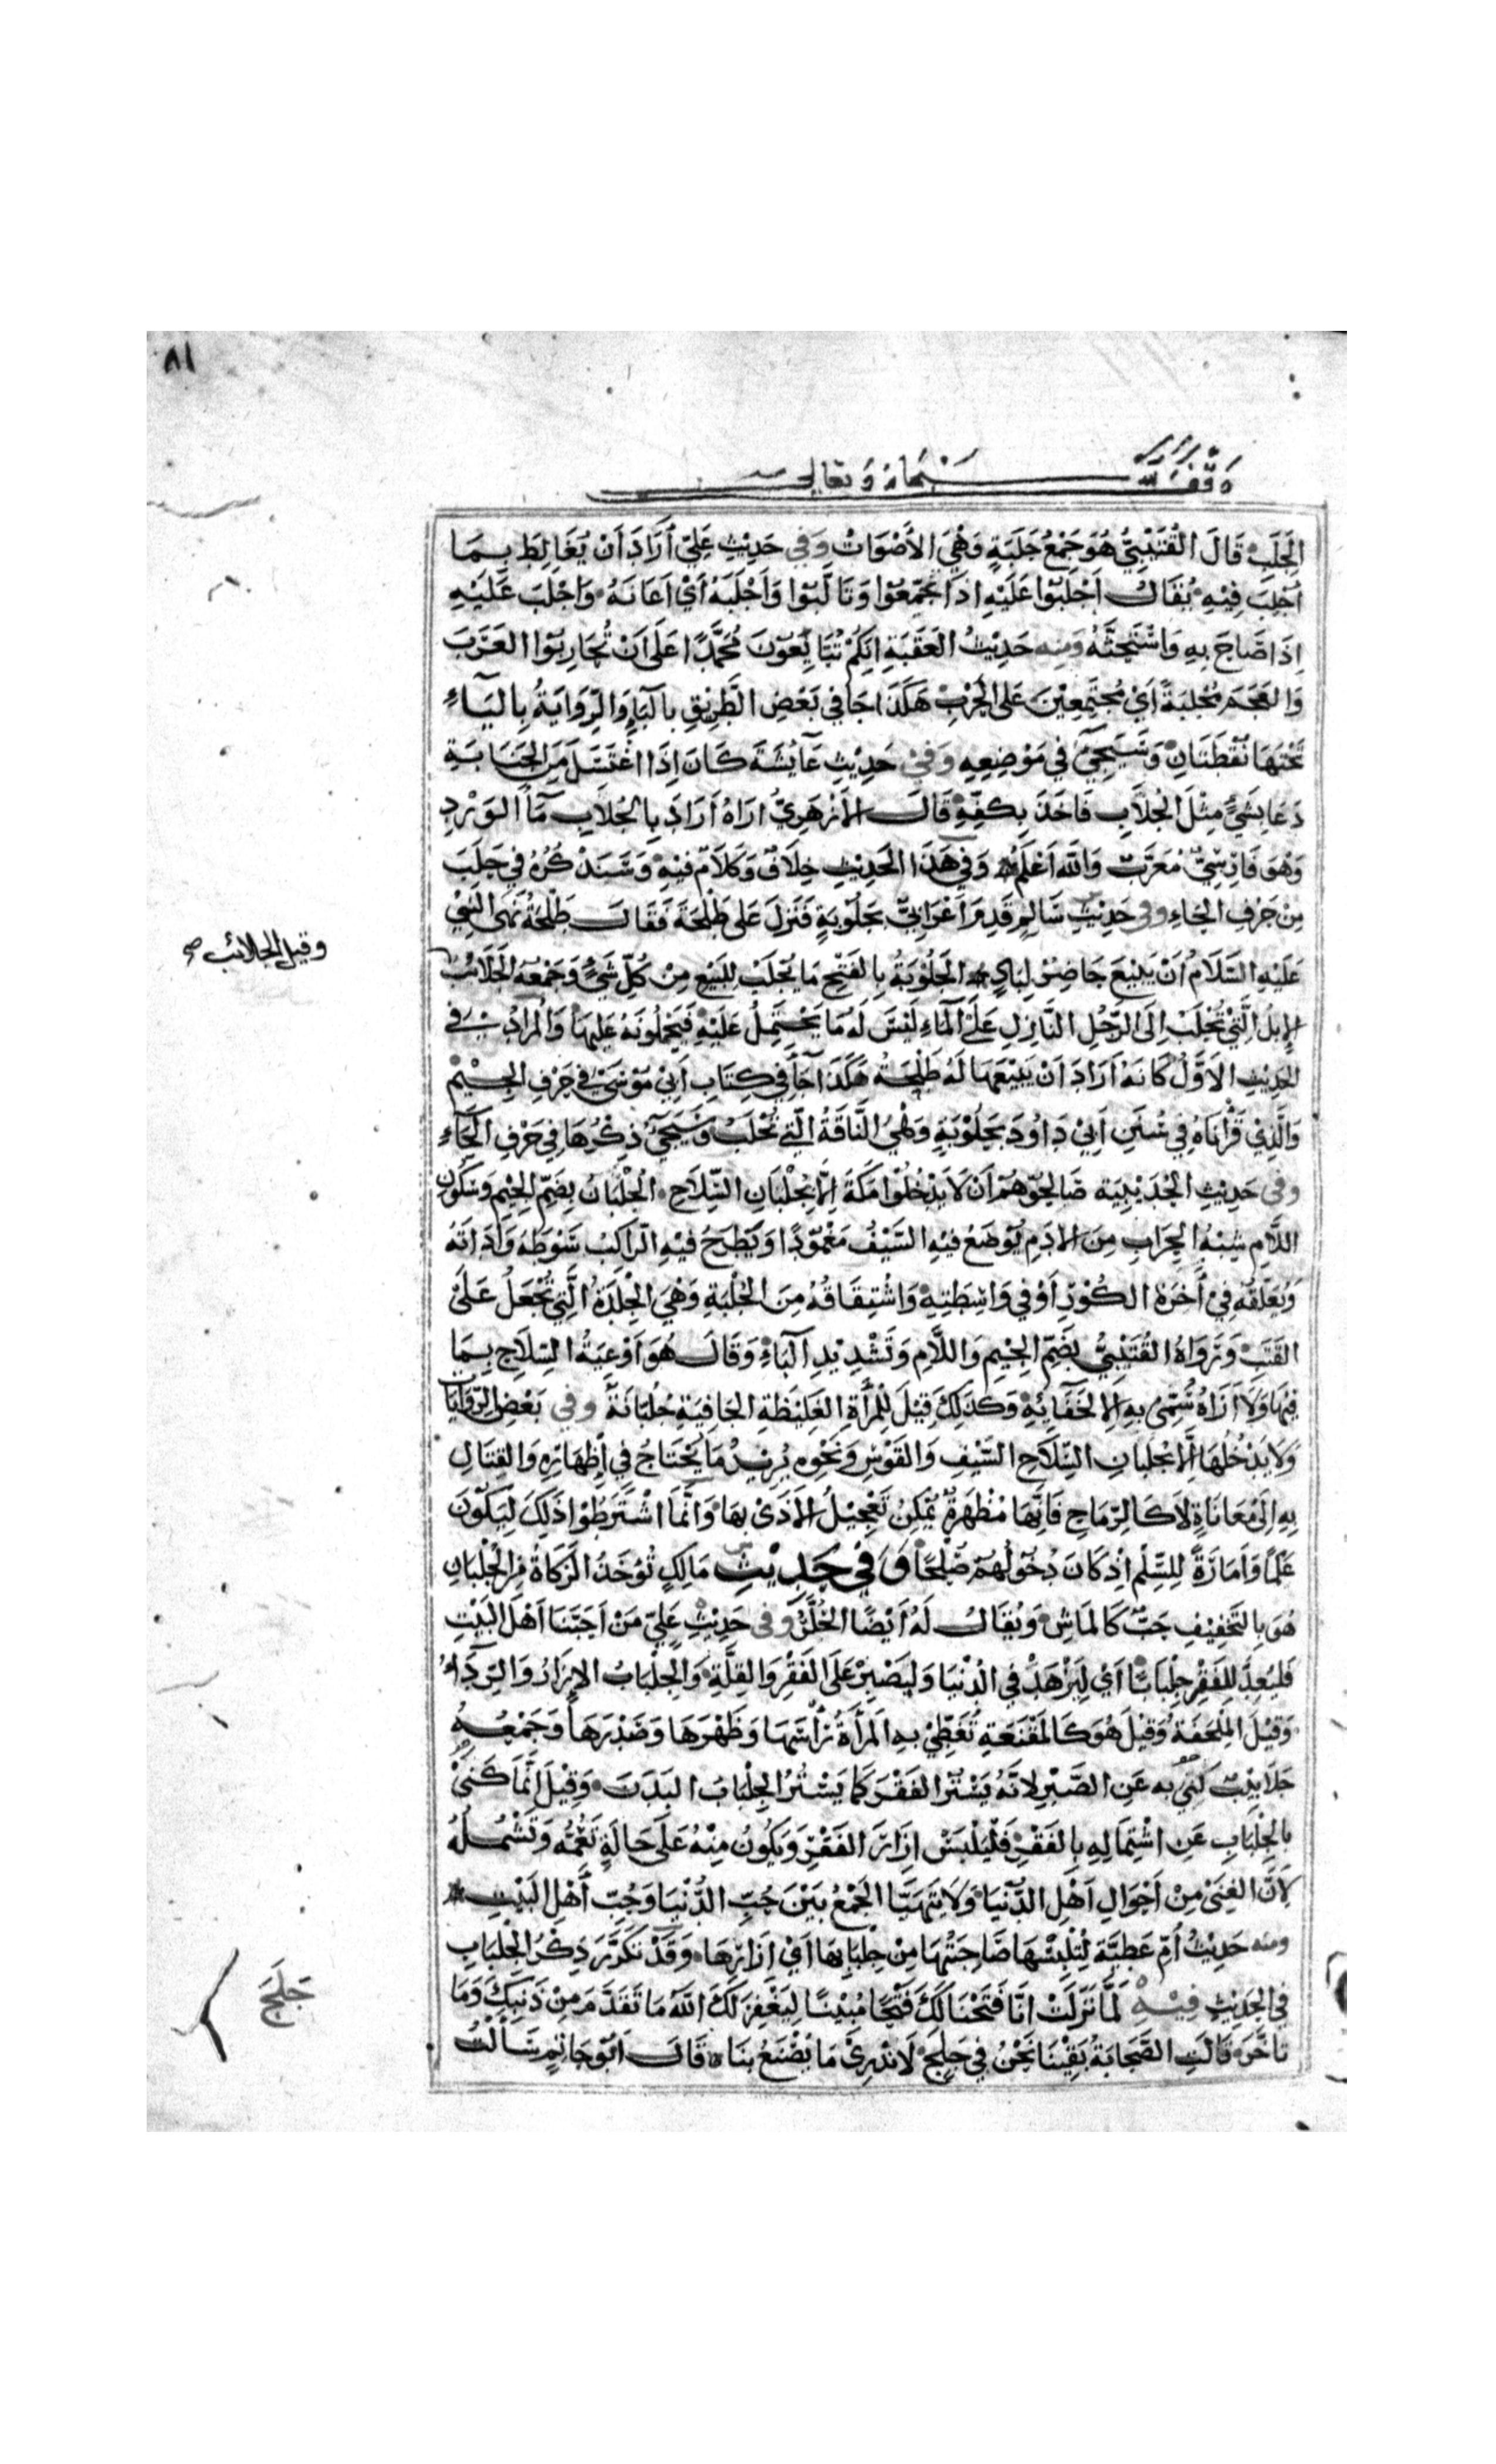 ٨١
وقف لله سبحانه وتعالى
الجَلَبَ قَالَ القُتَيْبِيُّ هُوَ جَمْعُ جَلَبَةٍ وَهْيَ الأَصْوَاتُ وَفي حَدِيْثِ عَلِيّ أَرَادَ أَنْ يُغَالِطَ بِمَا
أَجْلَبَ فِيْهِ يُقَالُ أَجْلَبُوا عَلَيْهِ اذَا تَجَمَّعُوا وَتَأَلَّبُوا وَأَجْلَبَهُ أَيْ أَعَانَهُ وَاَجْلَبَ عَلَيْهِ
اِذَا صَاحَ بِهِ وَاسْتَحَثَّهُ وَمِنه حَدِيْثُ العَقَبَةِ اِنَّكُمْ تُبَايِعُوْنَ مُحَمَّدًا عَلَى اَنْ تُحَارِبُوا العَرَبَ
وَالعَجَمَ مُجْلِبَةً اَيْ مُجْتَمِعِيْنَ عَلى الحَرْبِ هَكَذَا جَا في بَعْضِ الطَّرِيْقِ بِالبَاءِ وَالرِّوَايَةُ بِاليَاءِ
تَحْتَهَا نُقْطَتَانِ وَسَيَجِيْءُ فِي مَوْضِعِهِ وَفي حَدِيْثِ عَائِشَةَ كَانَ إِذَا اغْتَسَلَ مِنَ الجَنَابَةِ
دَعَا بِشَيْءٍ مِثْلَ الجُلاَّبِ فَاَخَذَ بِكَفِّهِ قَالَ الأَزْهَرِيُّ ارَاهُ أَرَادَ بِالجُلاَّبِ مَآءَ الوَرْدِ
وَهُوَ فَارِسِيٌّ مُعَرَّبٌ وَاللَّه اَعْلَمُ وَفِي هَذَا الحَدِيْثِ خِلَافٌ وَكَلَامٌ فِيْهِ وَسَنَذْكُرُهُ فِي حَلَبَ
مِنْ حَرْفِ الحَاءِ وفي حَدِيْثِ سَالِمٍ قَدِمَ اَعْرَابِيٌّ بِجَلُوْبَةٍ فَنَزَلَ عَلى طَلْحَةَ فَقَالَ طَلْحَةُ نَهَى النَّبِيُّ
عَلَيْهِ السَّلَامُ اَنْ يَبِيْعَ حَاضِرٌ لِبَادٍ الجَلُوْبَةُ بِالفَتْحِ مَا يُجْلَبُ لِلبَيْعِ مِنْ كُلِّ شَيْءٍ وَجَمْعُهُ الجَلَائبُ
وقيل الجلائب صح
الإِبِلُ الَّتِيْ تُجْلَبُ اِلَى الرَّجُلِ النَّازِلِ عَلَى الماءِ لَيْسَ لَهُ مَا يَحْتَمِلُ عَلَيْهِ فَيَحْمِلُونَهُ عَلَيْهَا وَالمُرَادُ في
الحَدِيْثِ الاَوَّلُ كَانَهُ اَرَادَ اَنْ يَبِيْعَهَا لَهُ طَلْحَةُ هَكَذَا جَاَ في كِتَابِ اَبِيْ مُوْسَى في حَرْفِ الجِيْمِ
وَالَّذِيْ قَرَأْنَاهُ فِي سُنَنِ اَبِيْ دَاوُدَ بِحَلُوْبَةٍ وَهْيَ النَّاقَةُ الَّتِي تُحْلَبُ وَسَيَجِيْءُ ذِكْرُهَا فِي حَرْفِ الحَاءِ
وَفي حَدِيْثِ الحُدَيْبِيَة صَالَحُوْهُمْ اَنْ لَا يَدْخُلُوْا مَكَّةَ اِلَّا بِجُلْبَانِ السِّلَاحِ الجُلْبَانُ بِضَمّ الجِيْمِ وَسُكُوْنِ
اللَّامِ شِبْهُ الجِرَابِ مِنَ الأَدَمِ يُوْضَعُ فِيْهِ السَّيْفُ مَغْمُوْدًا وَيَطْرَحُ فِيْهِ الرَّاكِبُ سَوْطَهُ وَأَدَاتَهُ
وَيُعَلّقُهُ فِيْ أَخِرَةِ الكُوْرِ اَوْ فِي وَاسِطَتِهِ وَاشْتِقَاقُهُ مِنَ الجُلْبَةِ وَهْيَ الجِلْدَةُ الَّتِي تُجْعَلُ عَلَى
القَتَبِ وَرَوَاهُ القُتَيْبِيُّ بِضَمِّ الجِيْمِ وَاللَّامِ وَتَشْدِيْدِ البَاءِ وَقَالَ هُوَ أَوْعِيَةُ السِّلَاحِ بِمَا
فِيْهَا وَلَا اَرَاهُ سُمِّيَ بِهِ اِلَّا لِجَفَائِهِ وَكَذَلِكَ قِيْلَ لِلْمَرْأَةِ الغَلِيْظَةِ الجَافِيَةِ جُلُبَّانَةٌ وَفي بَعْضِ الرِّوَايَات
وَلَا يَدْخُلُهَا إِلَّا بِجُلْبَانِ السِّلَاحِ السَّيْفِ وَالقَوْسِ وَنَحْوِهِ يُرِيْدُ مَا يُحْتَاجُ فِي إِظْهَارِهِ وَالقِتَالِ
بِهِ اِلَى مُعَانَاةٍ لَا كَالرِّمَاحِ فَاِنَّهَا مُظْهَرَةٌ يُمْكِنُ تَعْجِيْلُ الأَذَى بِهَا وَانَّمَا اشْتَرَطُوْا ذَلِكَ لِيَكُوْنَ
عَلَمًا وَاَمَارَةً لِلسِّلْمِ اِذْ كَانَ دُخُوْلُهُمْ صُلْحًا وَ فِي حَدِيْثِ مَالِكٍ تُؤخَذُ الزَّكَاةُ مِنَ الجُلْبَانِ
هُوَ بِالتَّخْفِيْفِ حَبٌّ كَالمَاشِ وَيُقَالُ لَهُ أَيْضًا الخُلَّرُ وَفي حَدِيْثِ عَلِيّ مَنْ اَحَبَّنَا اَهْلَ البَيْتِ
فَليُعِدَّ لِلفَقْرِ جِلْبَابًا اَيْ لِيَزْهَدْ فِي الدُّنْيَا وَلْيَصْبِرْ عَلَى الفَقْرِ وَالقِلَّةِ وَالجِلْبَابُ الإِزَارُ وَالرِّدَاءُ
وَقِيْلَ المِلْحَفَةُ وَقِيْلَ هُوَ كَالمِقْنَعَةِ تُغَطِّيْ بِهِ المَرْأَةُ رَأْسَهَا وَظَهْرَهَا وَصَدْرَهَا وَجَمْعُهُ
جَلَابِيْبُ كَنَى بِه عَنِ الصَّبْرِ لانَّهُ يَسْتُرُ الفَقْرَ كَمَا يَسْتُرُ الجِلْبَابُ البَدَنَ وَقِيْلَ انَّمَا كَنَى
بِالجِلْبَابِ عَنِ اشْتِمَالِهِ بِالفَقْرِ فَلْيَلْبَسْ اِزَارَ الفَقْرِ وَيَكُونُ مِنْهُ عَلَى حَالَةٍ تَعُمُّهُ وَتَشْمُلُهُ
لِاَنَّ الغِنَى مِنْ اَحْوَالِ اَهْلِ الدُّنْيَا وَلَا يَتَهَيَّأ الجَمْعُ بَيْنَ حُبِّ الدُّنْيَا وَحُبِّ أَهْلِ البَيْتِ
ومنه حَدِيْثُ اُمّ عَطِيَّة لِتُلْبِسْهَا صَاحِبَتُهَا مِنْ جِلْبَابِهَا اَيْ اِزَارِهَا وَقَدْ تَكَرَّرَ ذِكْرُ الجِلْبَابِ
في الحَدِيْثِ فِيْهِ لَمَّا نَزَلَتْ انَّا فَتَحْنَا لَكَ فَتْحًا مُبِيْنًا لِيَغْفِرَ لَكَ اللَّهُ مَا تَقَدَّمَ مِنْ ذَنْبِكَ وَمَا
جَلَجَ
تاخَّرَ قَالَتِ الصَّحَابَةُ بَقِيْنَا نَحْنُ فِي جَلَجٍ لَا نَدْرِيْ مَا يُصْنَعُ بِنَا قَالَ اَبُوْ حَاتِمٍ سَأَلْتُ